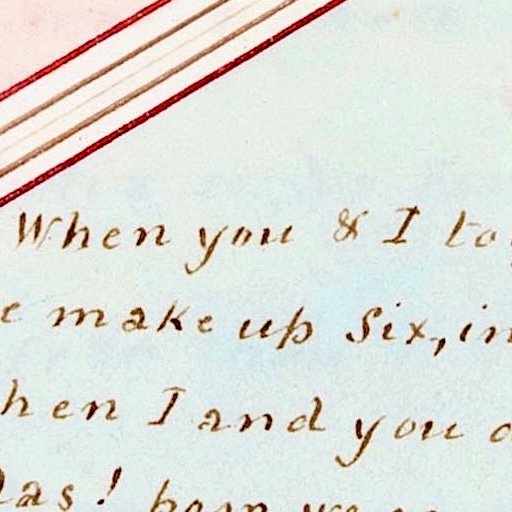 When you & I to
make up six, in
hen I and you
las! poor we